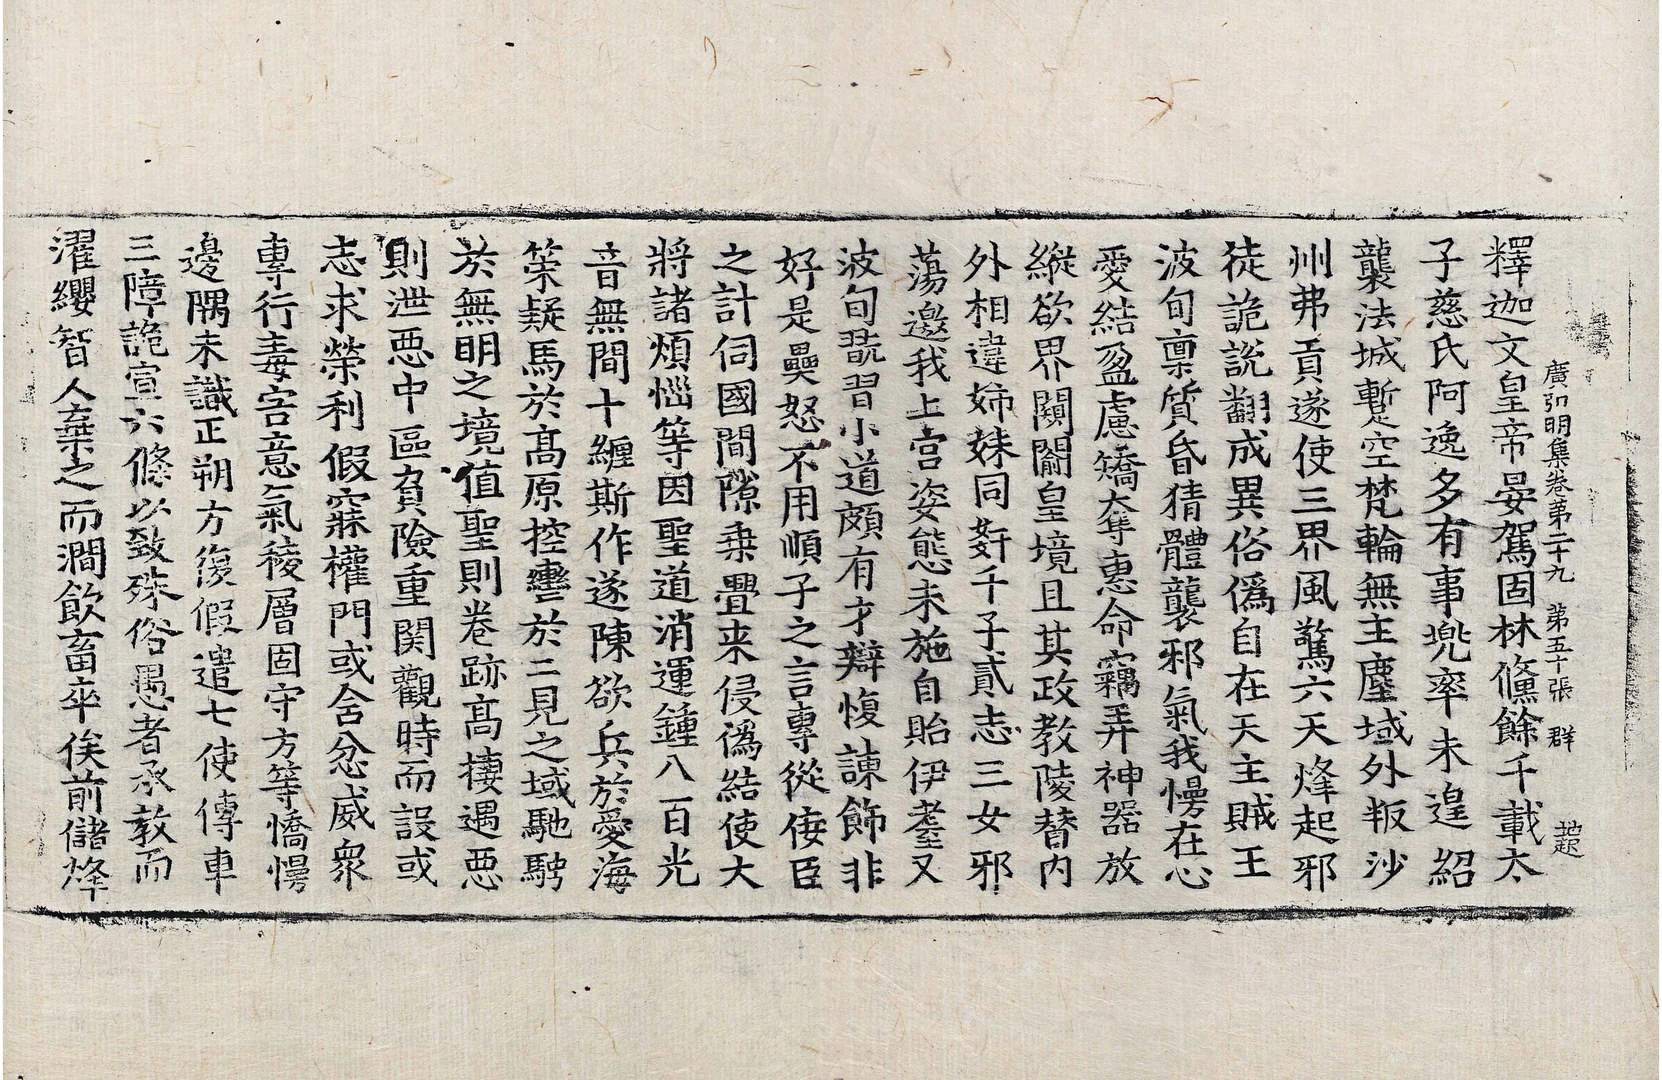 廣弘明集卷第二十九 第五十張 群
釋迦文皇帝晏駕固林儵餘千載太
子慈氏阿逸多有事兜率未遑紹
襲法城蹔空梵輪無主塵域外叛沙
州弗貢遂使三界風驚六天烽起邪
徒詭說翻成異俗偽自在天主賊王
波旬禀質昏猜體襲邪氣我慢在心
愛結盈慮矯奪惠命竊弄神器放
縱欲界闚𨵦皇境且其政教陵替內
外相違姊妹同姧千子貳志三女邪
蕩邀我上宮姿態未施自貽伊耋又
波旬翫習小道頗有才辯愎諫飾非
好是舋怒不用順子之言專從倿臣
之計伺國間隙乗疊来侵偽結使大
將諸煩惱等因聖道消運鍾八百光
音無間十纏斯作遂陳欲兵於愛海
筞疑馬於髙原控轡於二見之域馳騁
於無明之境值聖則卷跡髙棲遇惡
則泄惡中區負險重関觀時而設或
志求榮利假寐權門或含忿威衆
專行毒害意氣稜層固守方等憍慢
邊隅未識正朔方復假遣七使傳車
三障詭宣六條以致殊俗愚者承教而
濯纓智人棄之而澗飲畜卒俟前儲烽